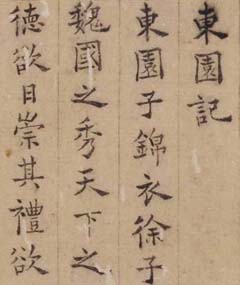 東園記
東園子錦衣徐子
魏國之秀天下之
徳欲日崇其禮欲